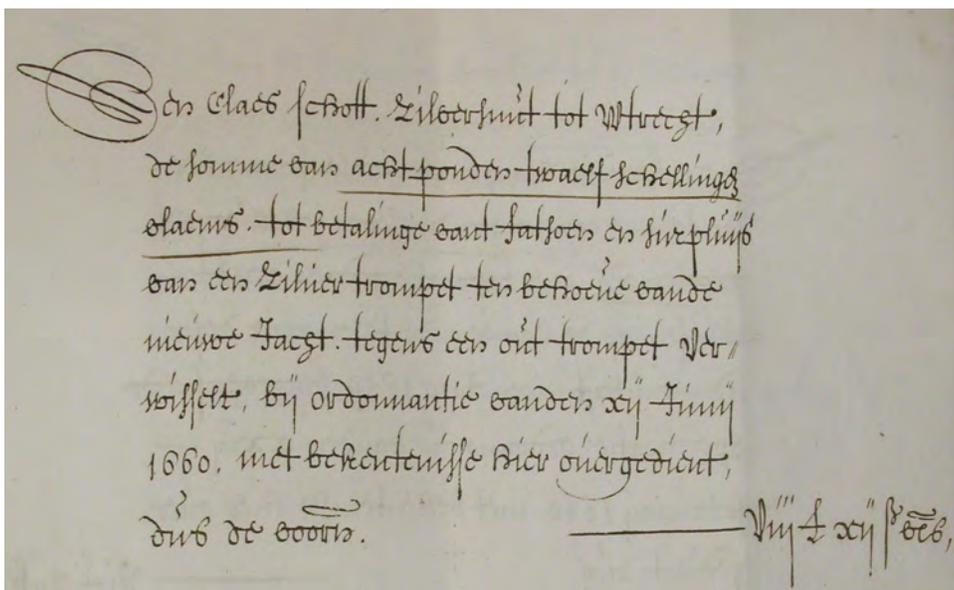 Den Claes schott. zilversmit tot Wtrecht,
de somme van acht ponden twaelf schellinge
vlaems. tot betalinge vant fatsoen en surpluijs
van een zilvier trompet ten behoeve vande
nieuwe Jacht. tegens een out trompet ver„
wisselt, bij ordonnantie vanden xij Junij
1660. met bekentenisse hier overgedient,
dus de voorn. viij £ xij sc vls,